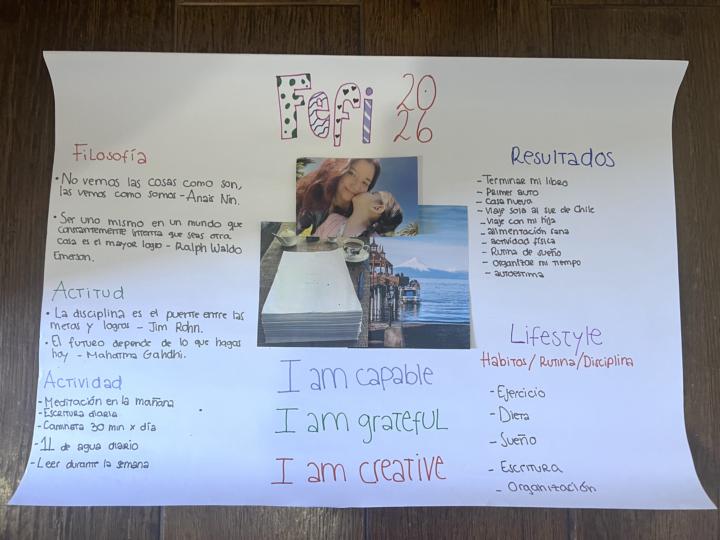 Fefi 20
26
Filosofía
• No vemos las cosas como son,
las vemos como somos - Anaïs Nin.
• Ser uno mismo en un mundo que
constantemente intenta que seas otra
cosa es el mayor logro - Ralph Waldo
Emerson.
Actitud
• La disciplina es el puente entre las
metas y logros - Jim Rohn.
• El futuro depende de lo que hagas
hoy - Mahatma Gahdhi.
Actividad
- Meditación en la mañana
- Escritura diaria
- Caminata 30 min x día
- 1L de agua diario
- Leer durante la semana
I am capable
I am grateful
I am creative
Resultados
- Terminar mi libro
- Primer auto
- Casa nueva
- Viaje sola al sur de Chile
- Viaje con mi hija
- alimentación sana
- actividad física
- Rutina de sueño
- organizar mi tiempo
- autoestima
Lifestyle
Habitos / Rutina / Disciplina
- Ejercicio
- Dieta
- Sueño
- Escritura
- Organización